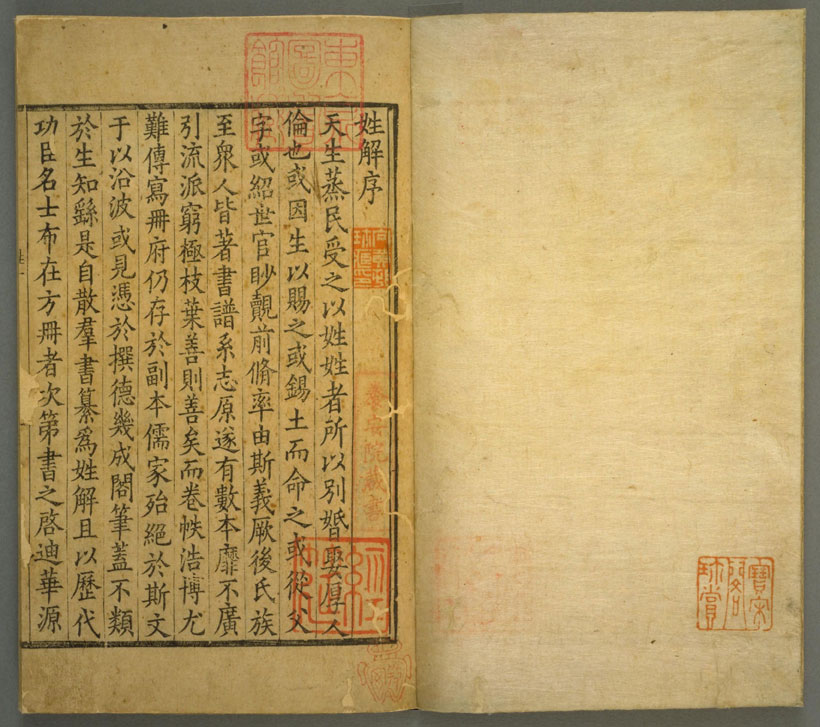 姓解序
天生蒸民受之以姓姓者所以別婚娶厚人
倫也或因生以賜之或錫土而命之或從父
字或紹世官眇覿前脩率由斯義厥後氏族
至衆人皆著書譜系志原遂有數本靡不廣
引流派窮極枝葉善則善矣而卷帙浩博尤
難傳寫冊府仍存於副本儒家殆絕於斯文
于以沿波或見憑於撰德幾成閣筆蓋不類
於生知繇是自散羣書纂爲姓解且以歷代
功臣名士布在方冊者次第書之啓迪華源
寶宋閣珍賞
養安院藏書